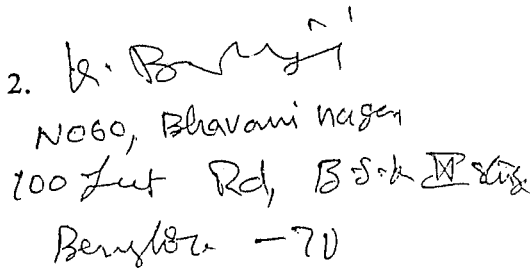 2. K. B
No60, Bhavani nagar
100 feet Rd, B.S.k III stg.
Banglore - 70